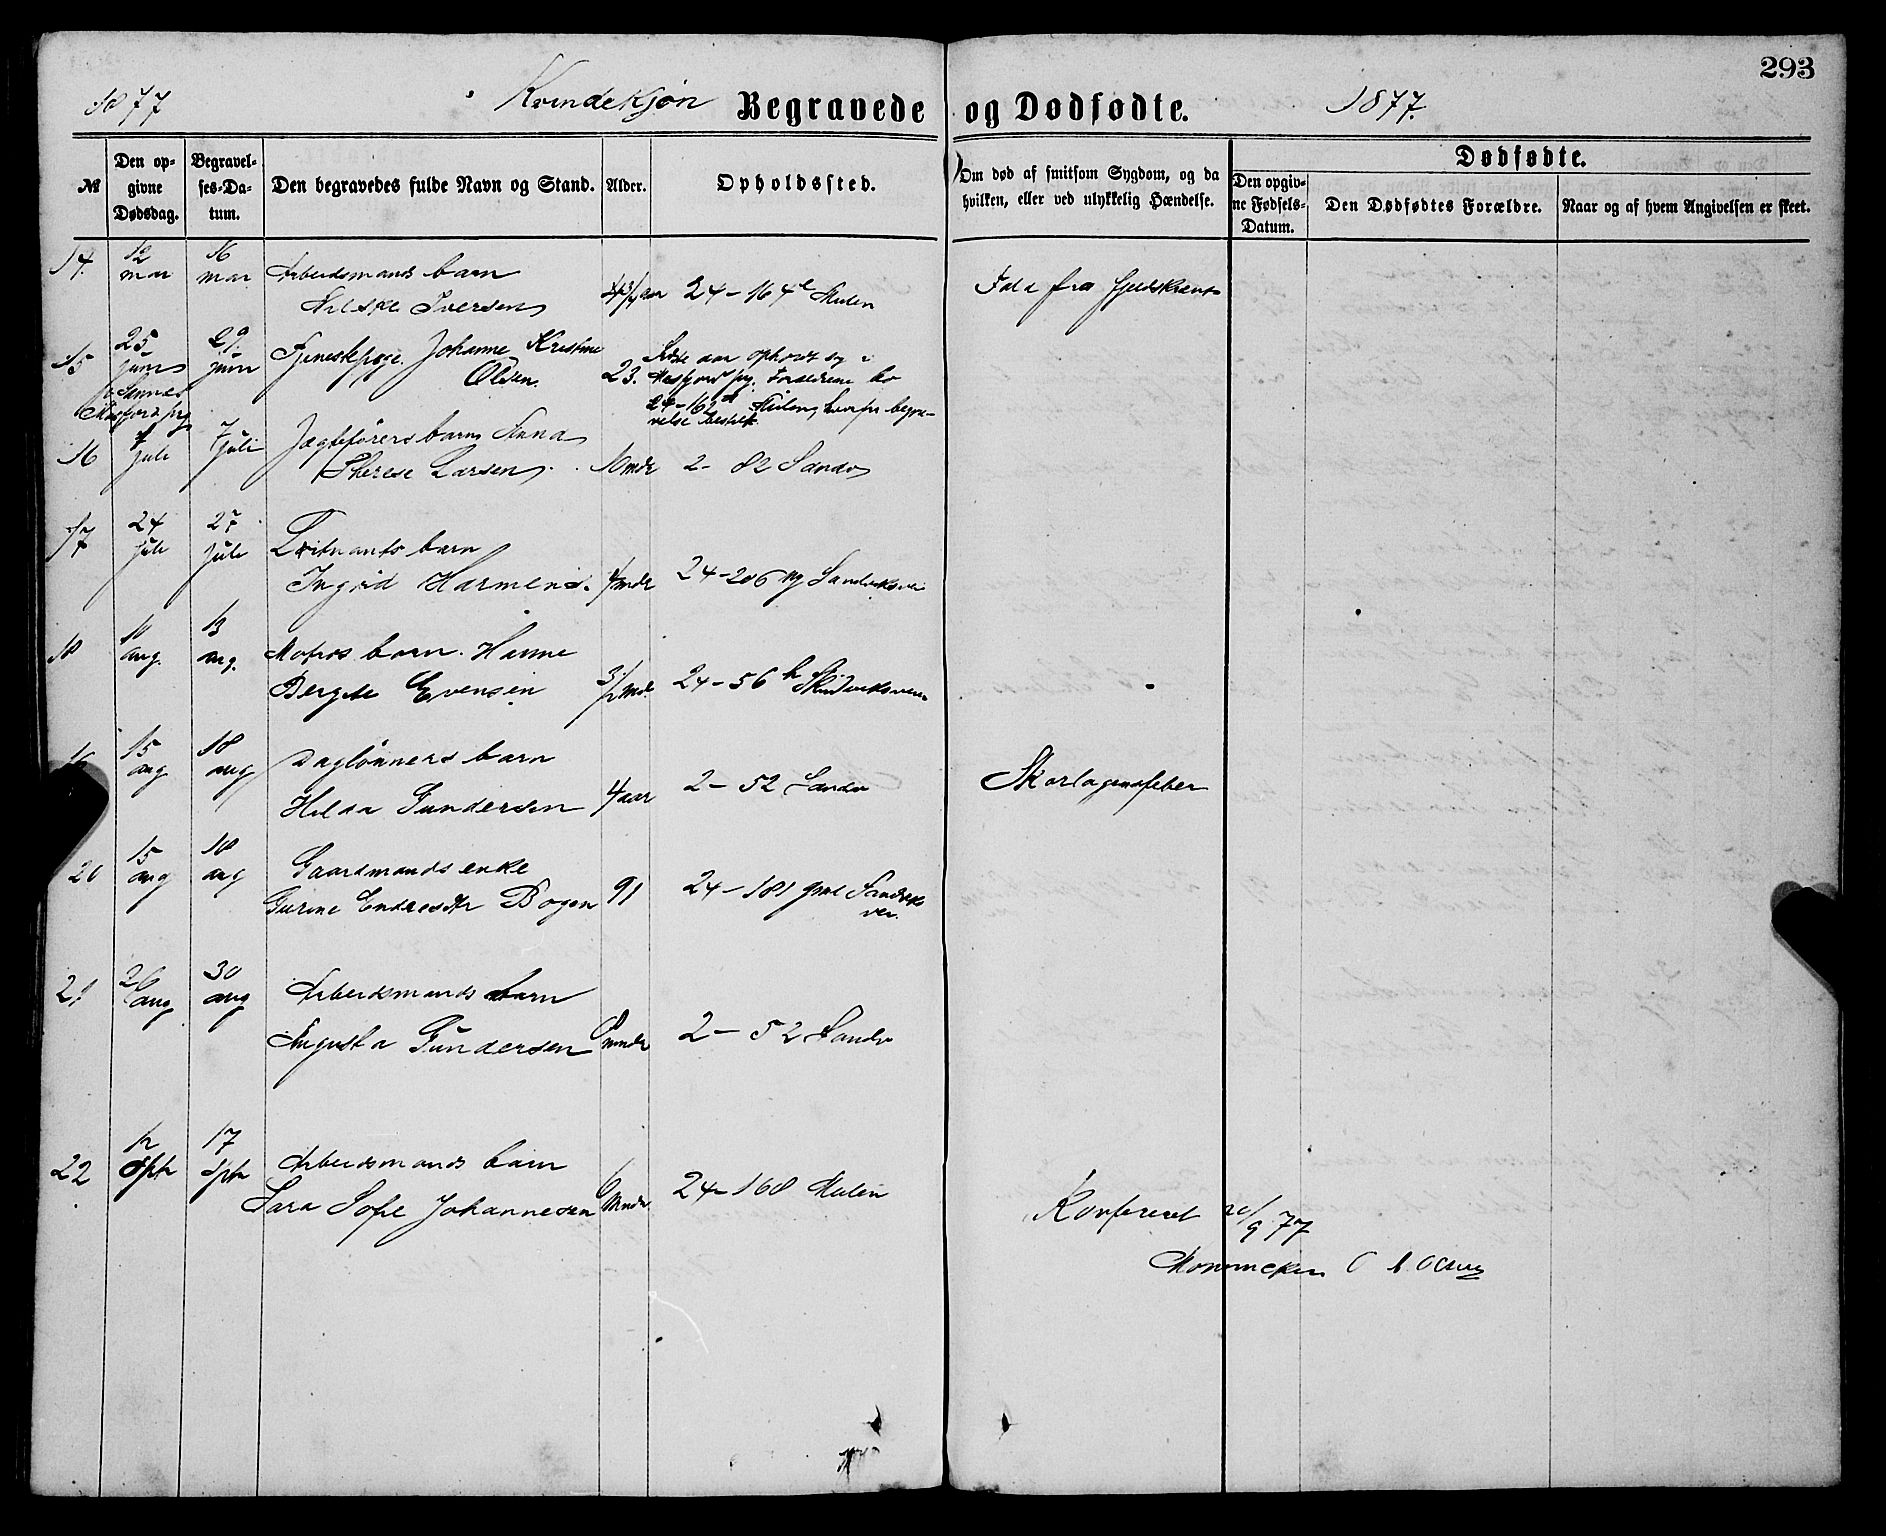 293
1877 Kvindekjøn Begravede og Dødfødte. 1877.
№
Den op-
givne
Dødsdag.
Begravel-
ses-Da-
tum.
Den begravedes fulde Navn og Stand.
Alder.
Opholdssted.
Om død af smitsom Sygdom, og da
hvilken, eller ved ulykkelig Hændelse.
Dødfødte.
Den opgiv-
ne Fødsels-
Datum.
Den Dødfødtes Forældre.
Naar og af hvem Angivelsen er skeet.
14. 12 mar 16 mar Arbeidsmands barn
Iversen aar 24-164 Mulen
15 25 juni 29. juni Tjenestepige Johanne Kristine
Olsen. 23.
Forældrene bo
24-162 Mulen, begra-
velse
16 juli 7 juli barn Anna
Therese Larsen. 10 mdr 2- 82 Sandv
17 24 juli 27 juli barn
Ingrid Harmens. mdr 24-206 Sandviksvei
18 10 aug. 13 aug. Matros barn. Hanne
Evensen 24-56
15 aug 18 aug Daglønners barn
Hilda Gundersen 4 aar 2- 52 Sandv Skarlagensfeber
20 15 aug 18 aug Gaardmands enke
Gurine Endresdtr Bogen 91 24-181 gml Sandviks
vei.
21 26 aug 30 aug Arbeidsmands barn
Augusta Gundersen mndr 2- 52 Sandv
22 12 Spt 17 Spt Arbeidsmands barn
Sara Sofie Johannesen 6 mndr 24-168 Mulen
Konfereret 9 77